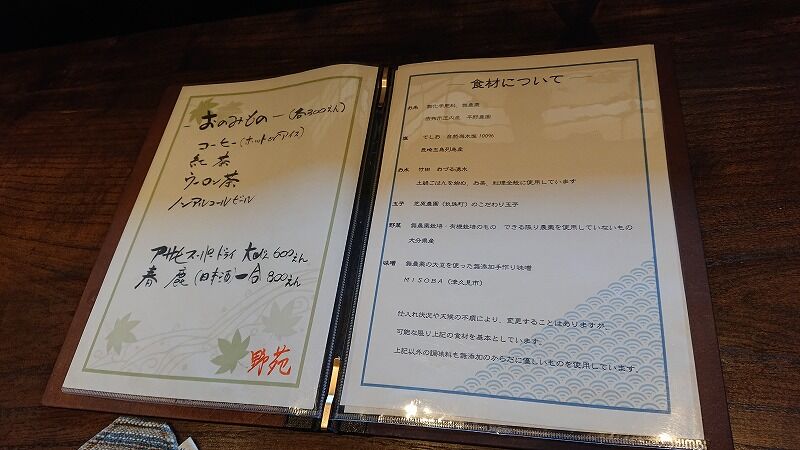 - おのみもの - (各300えん)
コーヒー (ホットorアイス)
紅茶
ウーロン茶
ノンアルコールビール
アサヒスーパードライ 大びん 600えん
春鹿 (日本酒) 一合 800えん
野苑
食材について
お米 無化学肥料、無農薬
平野農園
塩 てしお 自然海水塩100%
長崎五島列島産
お水 竹田 おづる湧水
土鍋ごはんを始め、お茶、料理全般に使用しています
玉子 (玖珠町)のこだわり玉子
野菜 無農薬栽培・有機栽培のもの できる限り農薬を使用していないもの
大分県産
味噌 無農薬の大豆を使った無添加手作り味噌
MISOBA (津久見市)
仕入れ状況や天候の不順により、変更することはありますが、
可能な限り上記の食材を基本としています。
上記以外の調味料も無添加のからだに優しいものを使用しています